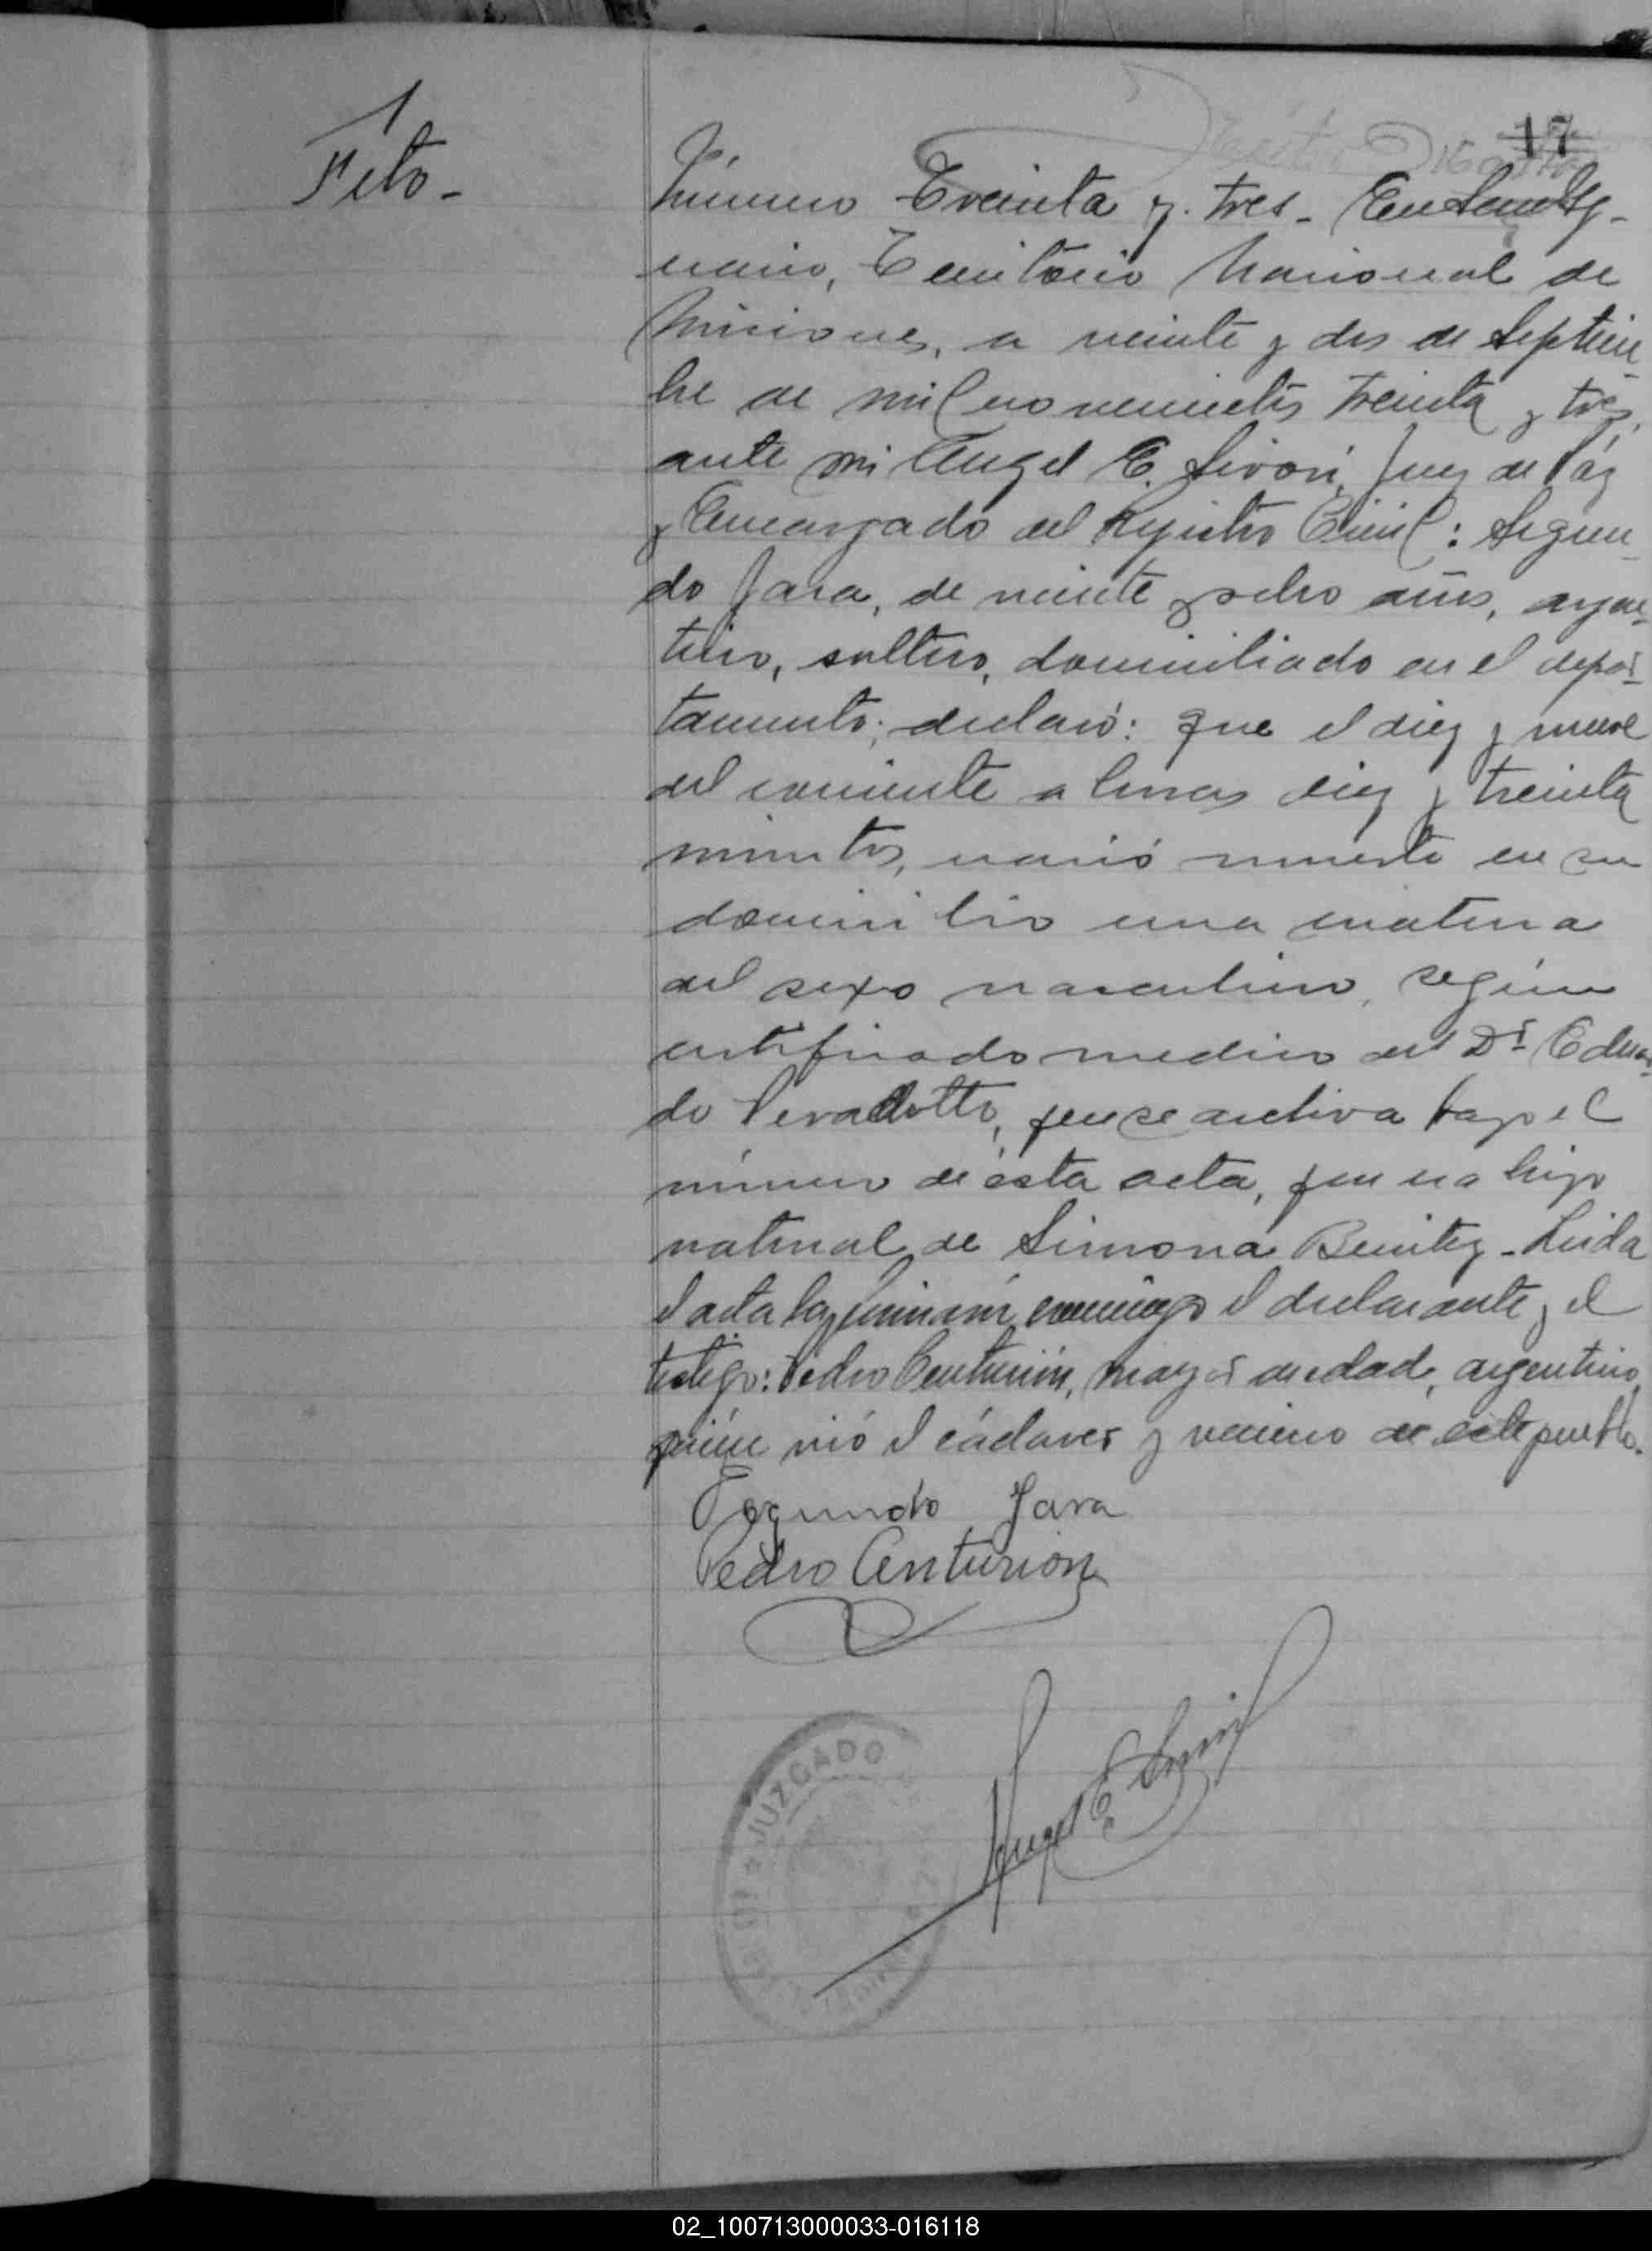 17
1
Feto-
Número Treinta y tres- En San Ig-
nacio, Territorio Nacional de
Misiones, a veinte y dos de Septiem
bre de mil novecientos treinta y tres,
ante mi Angel E. Sivori, Juez de Páz
y Encargado del Registro Civil: Segun-
do Jara, de veinte y ocho años, argen-
tino, soltero, domiciliado en el depar-
tamento; declaró: que el diez y nueve
del corriente a horas diez y treinta
minutos, nació muerta en su
domicilio una criatura
del sexo masculino, según
certificado medico del Dr Eduar-
do que se archiva bajo el
número de ésta acta, que era hijo
natural de Simona Benitez- Leida
el acta la firmaron conmigo el declarante y el
testigo: Pedro Centurión, mayor de edad, argentino,
quién vió el cádaver y vecino de este pueblo.
Segundo Jara
Pedro Centurion
Angel E. Sivori
JUZGADO
02_100713000033-016118